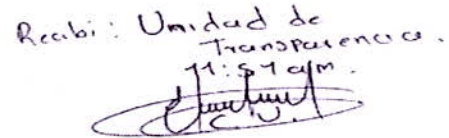 Recibi: Unidad de
Transparencia.
11:57 am.